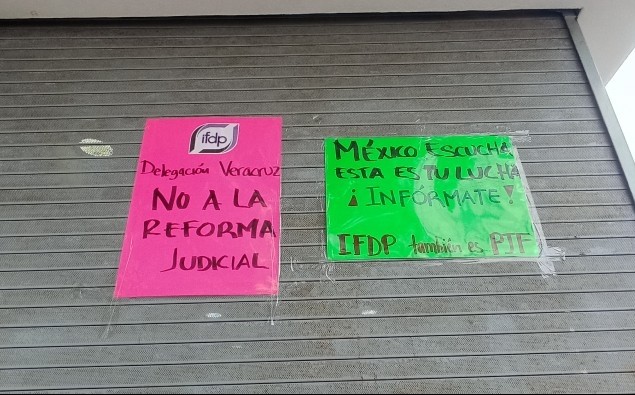 ifdp
Delegación Veracruz
NO A LA
REFORMA
JUDICIAL
MÉXICO ESCUCHA
ESTA ES TU LUCHA
¡INFÓRMATE!
IFDP también es PJF